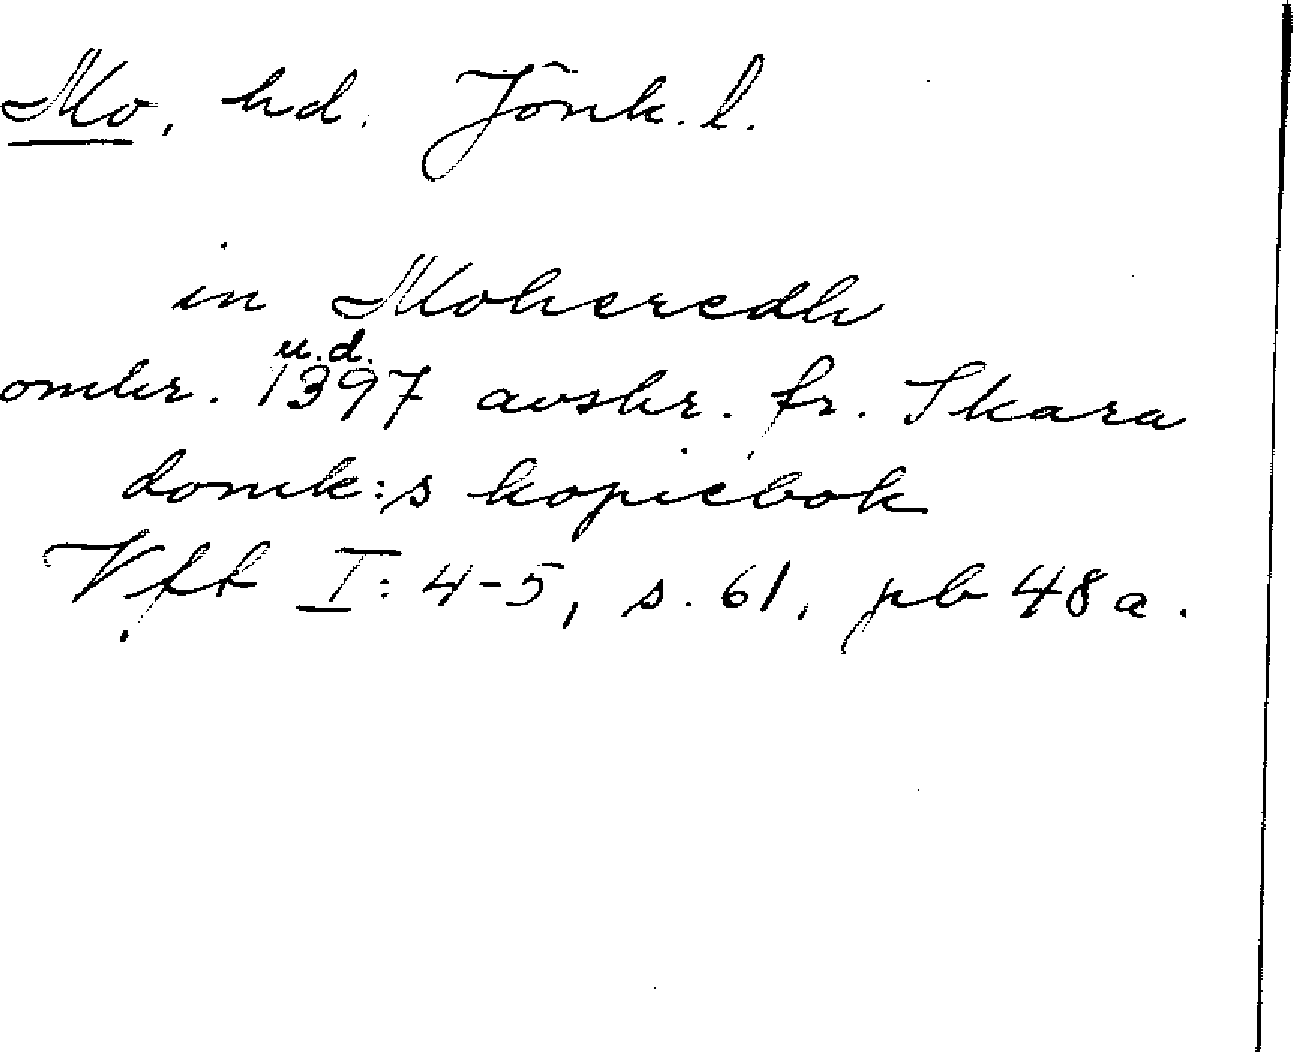 Mo, hd. Jönk. l.
in Moheredh
u.d.
omkr. 1397 avskr. fr. Skara
domk:s kopiebok
Vft I: 4-5, s. 61, pb 48a.